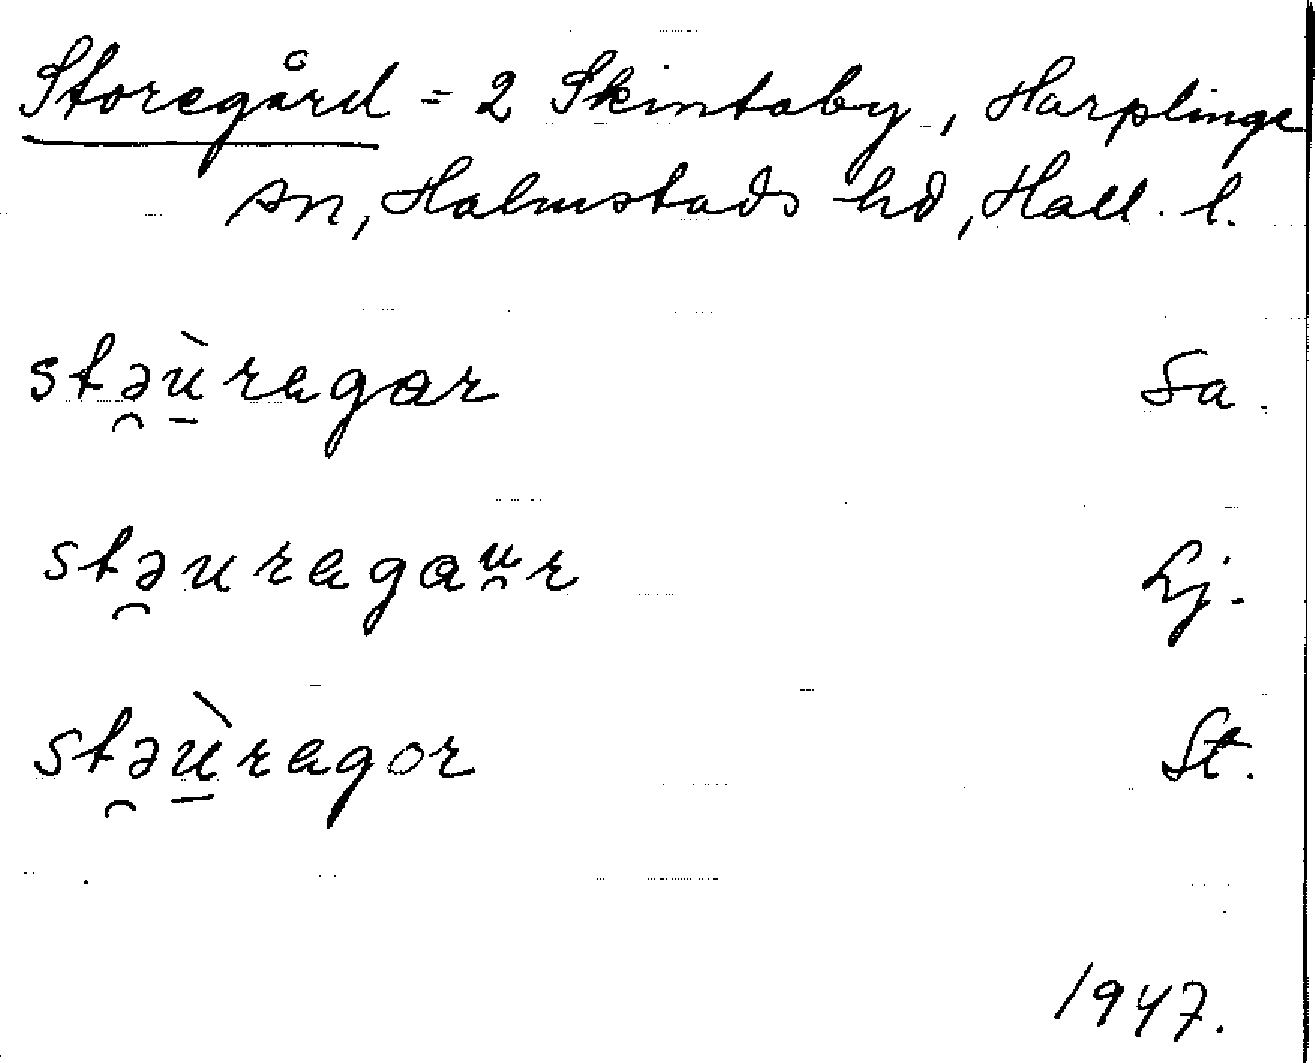 Storegård = 2 Skintaby, Harplinge
sn, Halmstads hd, Hall. l.
stə̯ù̱ragar Sa.
stə̯uragau̯r Lj.
stə̯ù̱ragor St.
1947.